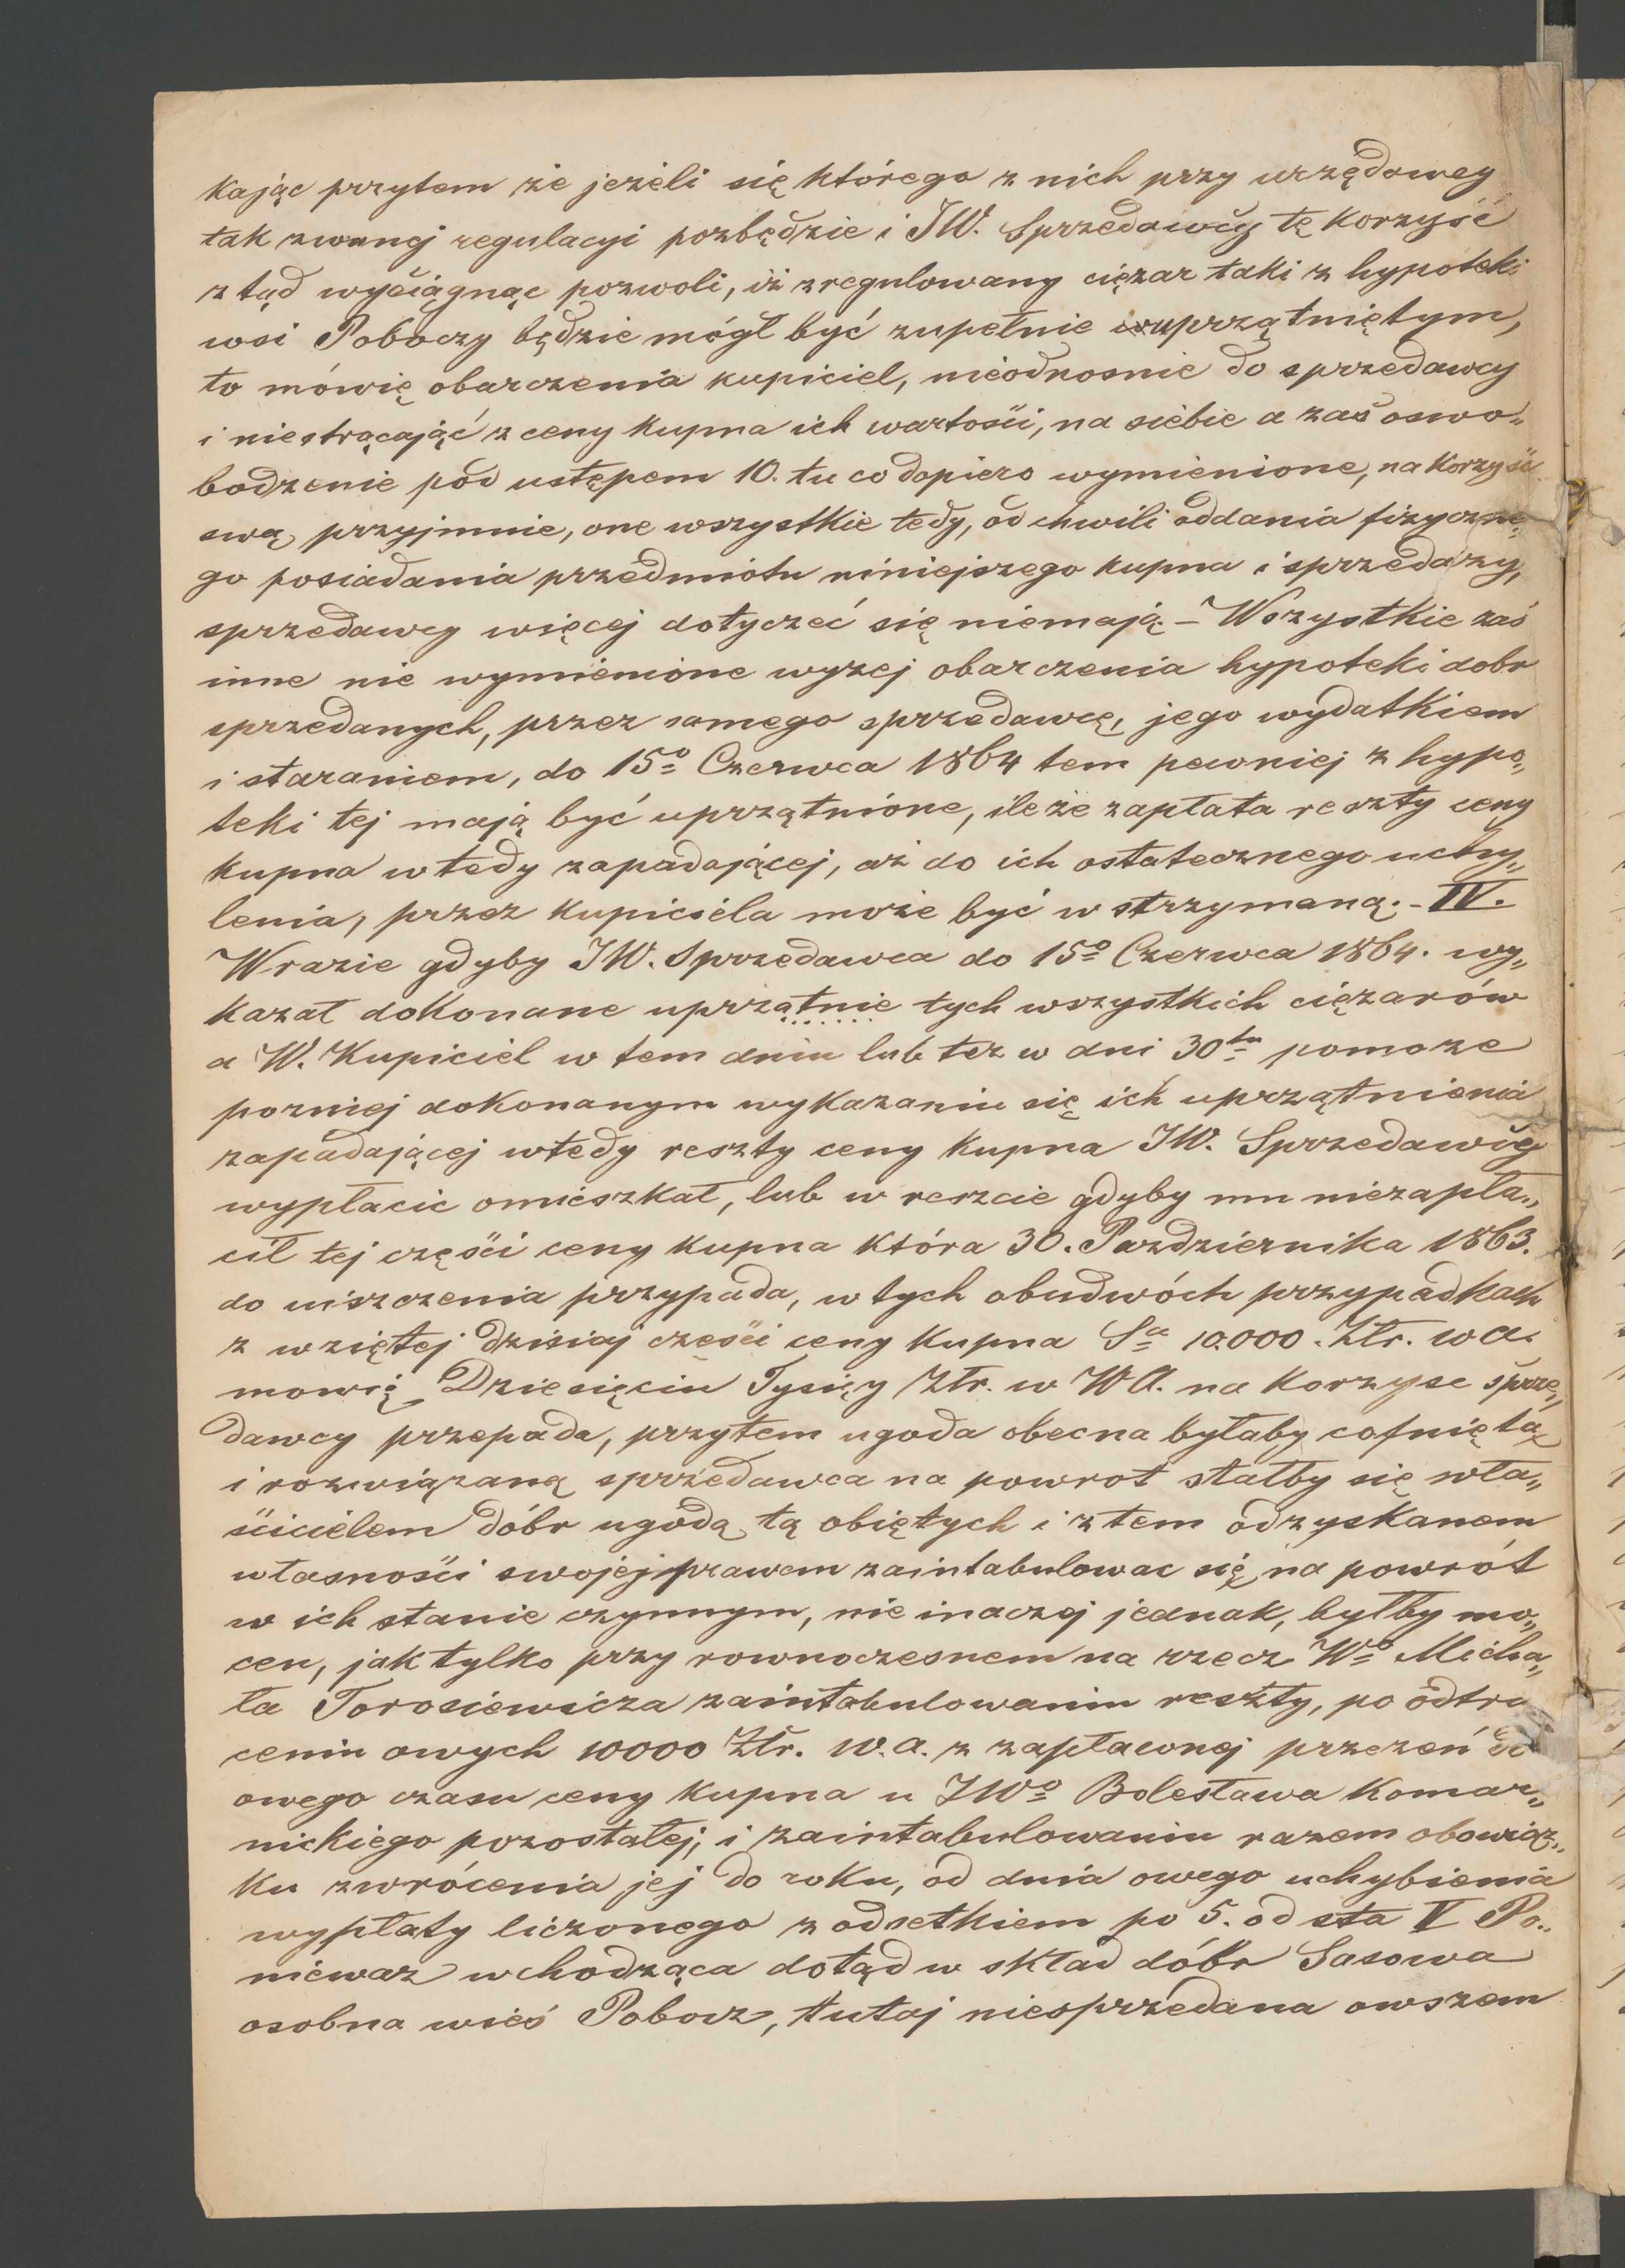 kając przytem że jeżeli się którego z nich przy urzędowey
tak zwanej regulacyi pozbędzie i JW. Sprzedawcy tę korzyść
z tąd wyciągnąc pozwoli, iż zregulowany ciężar taki z hypoteki
wsi Poboczy będzie mógł być zupełnie uprzątniętym,
to mówię obarczenia kupiciel, nieodnosnie do sprzedawcy
i niestrącająć z ceny kupna ich wartości, na siebie a zaś oswo„
bodzenie pod ustępem 10. tu co dopiero wymienione, na korzyść
swą przyjmnie, one wszystkie tedy, od chwili oddania fizyczne„
go posiadania przedmiotu niniejszego kupna i sprzedaży,
sprzedawcy więcej dotyczeć się niemają. – Wszystkie zaś
inne nie wymienione wyżej obarczenia hypoteki dobr
sprzedanych, przez samego sprzedawcę, jego wydatkiem
i staraniem, do 15º Czerwca 1864 tem pewniej z hypo„
teki tej mają być uprzątnione, ile że zapłata reszty ceny
kupna wtedy zapadającej, aż do ich ostatecznego uchy„
lenia, przez kupiciela może być wstrzymaną. – IV.
Wrazie gdyby JW. Sprzedawca do 15º Czerwca 1864. wy„
kazał dokonane uprzątnie tych wszystkich ciężarów
a W. Kupiciel w tem dniu lub też w dni 30tu pomoże
pozniej dokonanym wykazaniu się ich uprzątnienia
zapadającej wtedy reszty ceny kupna JW. Sprzedawcy
wypłacic omieszkał, lub w reszcie gdyby mu niezapła„
cił tej części ceny kupna która 30. Pazdziernika 1863.
do uiszczenia przypada, w tych obudwóch przypadkach
z wziętej dzisiaj cześci ceny kupna Sa 10.000. Złr. wa.
mowię Dziesięciu Tysięcy Złr. w WA. na korzysc sprze„
dawcy przepada, przytem ugoda obecna byłaby cofniętą
i rozwiązaną sprzedawca na powrot stałby się wła„
ścicielem dóbr ugodą tą obiętych i z tem odzyskanem
własności swojej prawem zaintabulowac się na powrót
w ich stanie czynnym, nie inaczej jednak, byłby mo„
cen, jak tylko przy rownoczesnem na rzecz Wº Micha„
ła Torosiewicza zaintabulowaniu reszty, po odtrą
ceniu owych 10000 Złr. w.a. z zapłaconej przezeń do
owego czasu ceny kupna u JWº Bolesława Komar„
nickiego pozostałej, i zaintabulowaniu razem obowiąz„
ku zwrócenia jej do roku, od dnia owego uchybienia
wypłaty liczonego z odsetkiem po 5. od sta V Po„
nieważ wchodząca dotąd w skład dóbr Sasowa
osobna wieś Pobocz, tutaj niesprzedana owszem